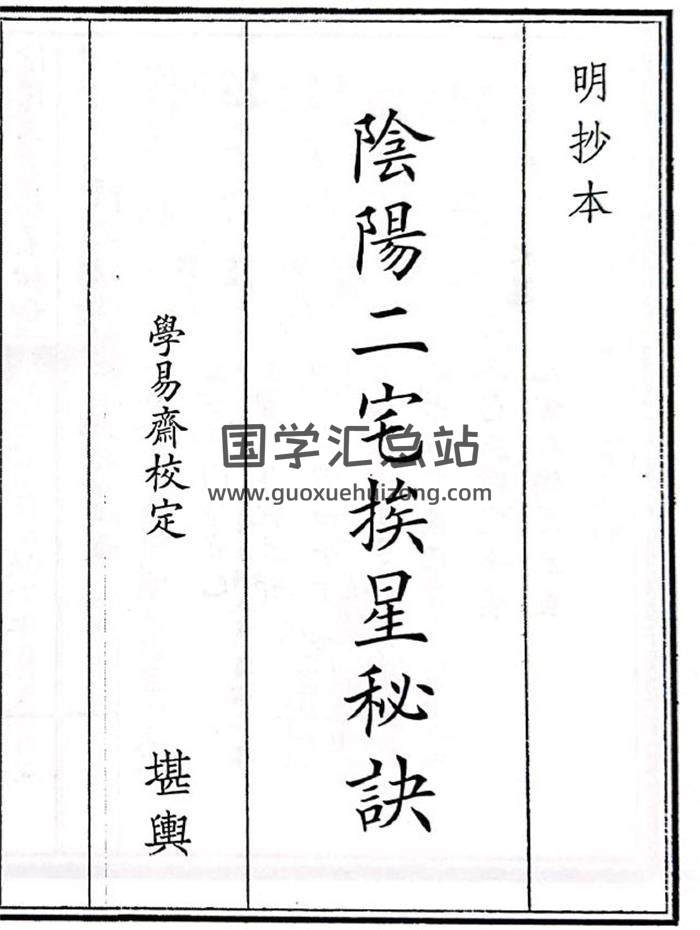 明抄本
陰陽二宅挨星秘訣
學易齋校定
堪輿
国学汇总站
www.guoxuehuizong.com